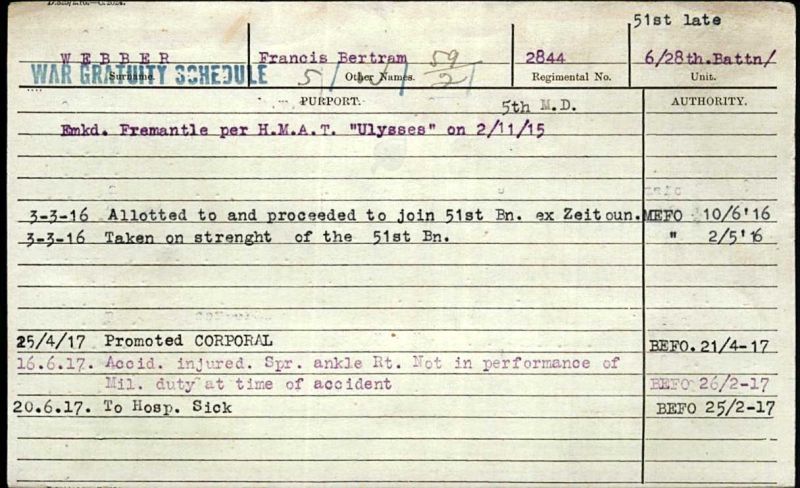 51st late
WEBBER Francis Bertram 59/2 2844 6/28th.Battn/
WAR GRATUITY SCHEDULE
Surname. Other Names. Regimental No. Unit.
PURPORT. 5th M.D. AUTHORITY.
Emkd. Fremantle per H.M.A.T. "Ulysses" on 2/11/15
3-3-16 Allotted to and proceeded to join 51st Bn. ex Zeitoun. MEFO 10/6'16
3-3-16 Taken on strenght of the 51st Bn. " 2/5'6
25/4/17 Promoted CORPORAL BEFO. 21/4-17
16.6.17. Accid. injured. Spr. ankle Rt. Not in performance of
Mil. duty at time of accident BEFO 26/2-17
20.6.17. To Hosp. Sick BEFO 25/2-17